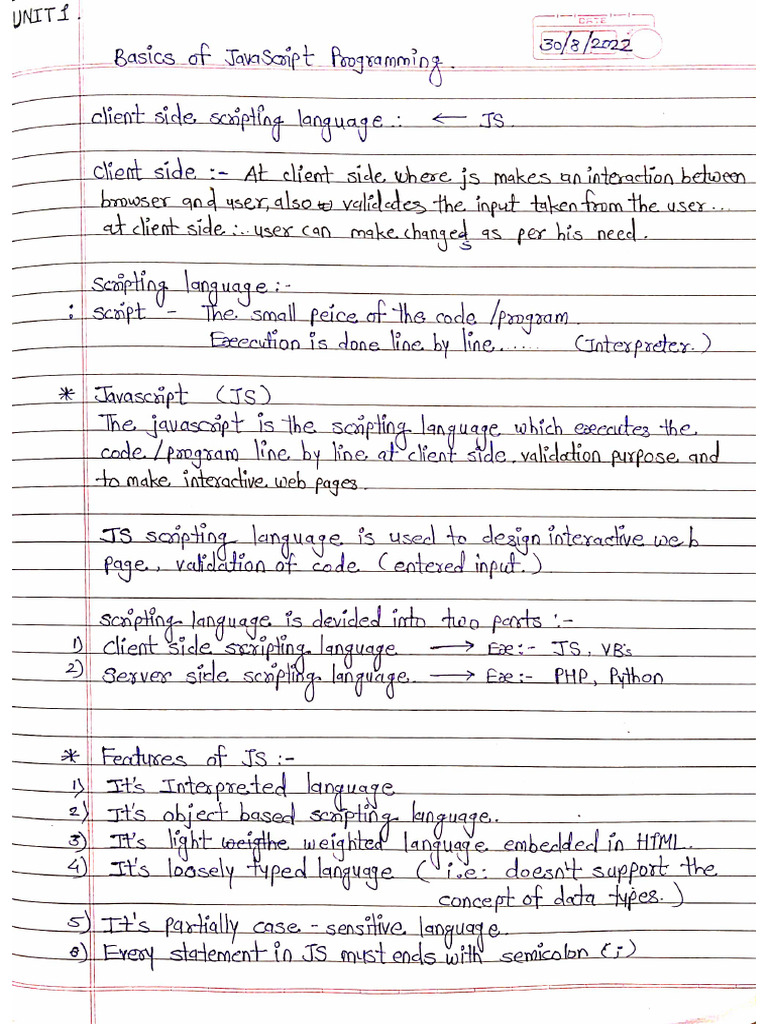 UNIT 1.
DATE
30/8/2022
Basics of JavaScript Programming.
client side scripting language :  ← JS.
client side :- At client side where js makes an interaction between
browser and user, also validates the input taken from the user...
at client side :.. user can make changes as per his need.
scripting language :-
: script - The small peice of the code /program.
Execution is done line by line...... (Interpreter.)
* Javascript (JS)
The javascript is the scripting language which executes the
code/program line by line at client side validation purpose and
to make interactive web pages.
JS scripting language is used to design interactive web
page, validation of code (entered input.)
scripting language is devided into two parts :-
1) client side scripting language → Exe:- JS, VB's
2) server side scripting language → Exe:- PHP, Python
* Features of JS :-
1) It's Interpreted language
2) It's object based scripting language.
3) It's light weigthe weighted language embedded in HTML.
4) It's loosely typed language (i.e: doesn't support the
concept of data types.)
5) It's partially case-sensitive language.
6) Every statement in JS must ends with semicolon (;)